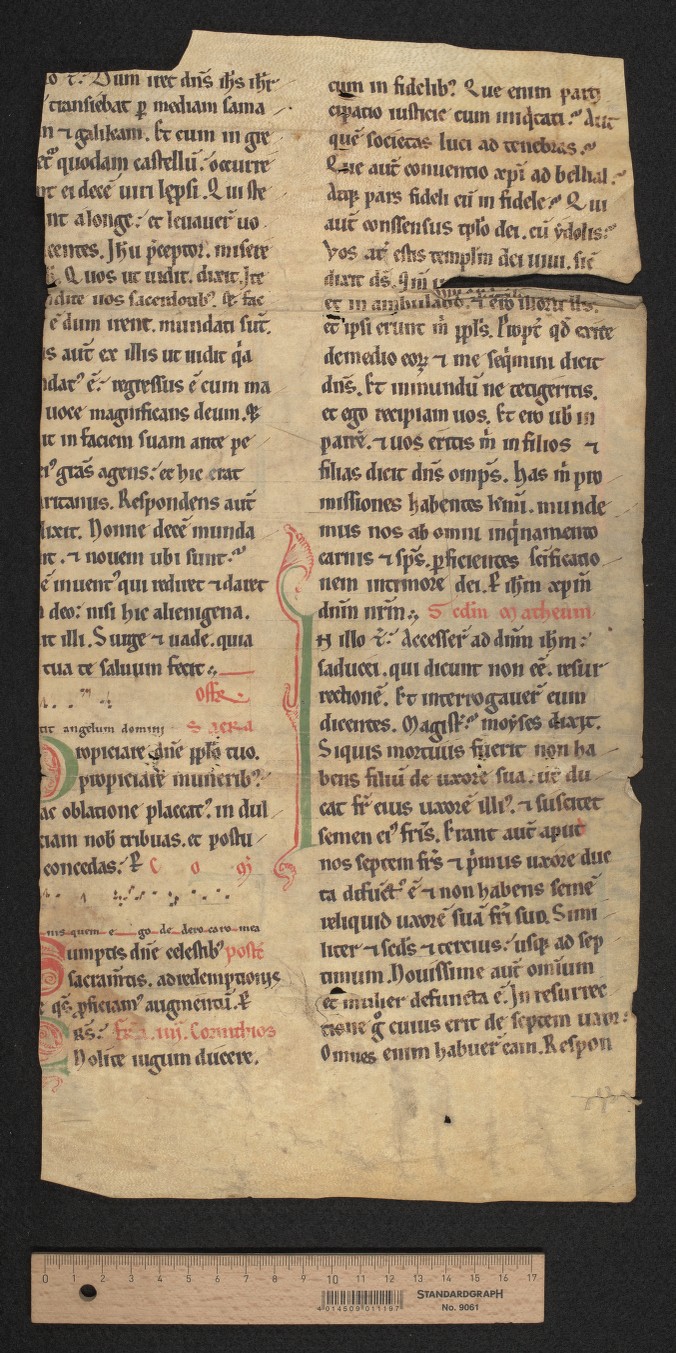 Dum iret dn̄s ih̄s ihr̄
transiebat ꝑ mediam sama
n ⁊ galileam. Et cum in gre
quodam castellū. occurre
nt ei decē uiri lepsi. Qui ste
nt a longe. et leuauer̄ uo
centes. Ih̄u p̄ceptor. misere
Quos ut uidit. dixit. Ite
ndite uos sacerdotib᷒. Et fac
ē dum irent. mundati sūt.
s aut̄ ex illis ut uidit q̄a
ndat᷒ ē. regressus ē cum ma
uoce magnificans deum. Et
it in faciem suam ante pe
ei᷒ gr̄as agens. et hic erat
aritanus. Respondens aut̄
dixit. Nonne decē munda
nt. ⁊ nouem ubi sunt.
ē inuent᷒ qui rediret ⁊ daret
deo. nisi hic alienigena.
it illi. Surge ⁊ uade. quia
tua te saluum fecit.
Offr̄.
tit angelum domini Sacra
Propiciare dn̄e ppl̄o tuo.
propiciare munerib᷒.
ac oblatione placat᷒. in dul
ciam nob̄ tribuas. et postu
concedas. P Co m̄
nis quem ego dedero caro mea
Sumptis dn̄e celestib᷒ postc̄
sacram̄tis. ad redemptionis
e qs̄ ꝓficiam᷒ augmentū. P
Fr̄s. Fr̄ iiij. Corinthios
Nolite iugum ducere.
cum in fidelib᷒. Que enim parti
cipatio iusticie cum iniq̄tati. Aut
que societas luci ad tenebras.
Que aut̄ conuentio xp̄i ad belial.
Aut pars fideli cū in fidele. Qui
aut̄ conssensus tp̄lo dei. cū ydolis.
Vos aut̄ estis templm̄ dei uiui. sic̄
dixit ds̄. Qm̄
et in ambulabo. ⁊ ero illorū ds̄.
et ipsi erunt m̄ ppl̄s. Propt̄ qd̄ exite
de medio eoꝝ ⁊ me seq̄mini dicit
dn̄s. Et inmundū ne tetigeritis.
et ego recipiam uos. Et ero uob̄ in
patrē. ⁊ uos eritis m̄ in filios ⁊
filias dicit dn̄s omp̄s. Has m̄ pro
missiones habentes kmī. munde
mus nos ab omni inq̄namento
carnis ⁊ sp̄s. ꝑficientes sc̄ificatio
nem in timore dei. P ih̄m xp̄m
dn̄m nr̄m. Scdm̄ Matheum
In illo t̄. Accesser̄ ad dn̄m ih̄m.
saducei. qui dicunt non eē. resur
rectionē. Et interrogauer̄ eum
dicentes. Magist̄. moyses dixit.
Si quis mortuus fuerit non ha
bens filiū de uxore sua. ut du
cat fr̄ eius uxorē illi᷒. ⁊ suscitet
semen ei᷒ fr̄is. Erant aut̄ aput
nos septem fr̄s ⁊ p̄mus uxore duc
ta defūct᷒ ē ⁊ non habens semē
reliquid uxorē suā fr̄i suo. Simi
liter ⁊ scds̄ ⁊ tercius. usq̨ ad sep
timum. Nouissime aut̄ omium
et mulier defuncta ē. In resurrec
tione ḡ cuius erit de septem uxor.
Omnes enim habuer̄ eam. Respon